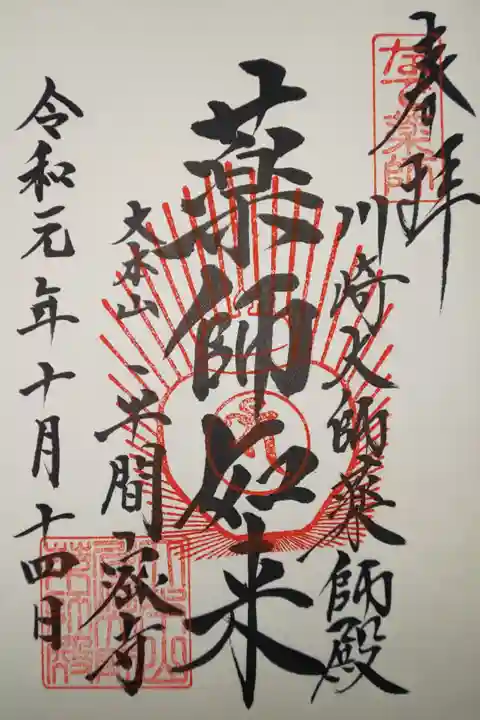 奉拝
なで薬師
川崎大師薬師殿
薬師如来
大本山
平間寺
令和元年十月十四日